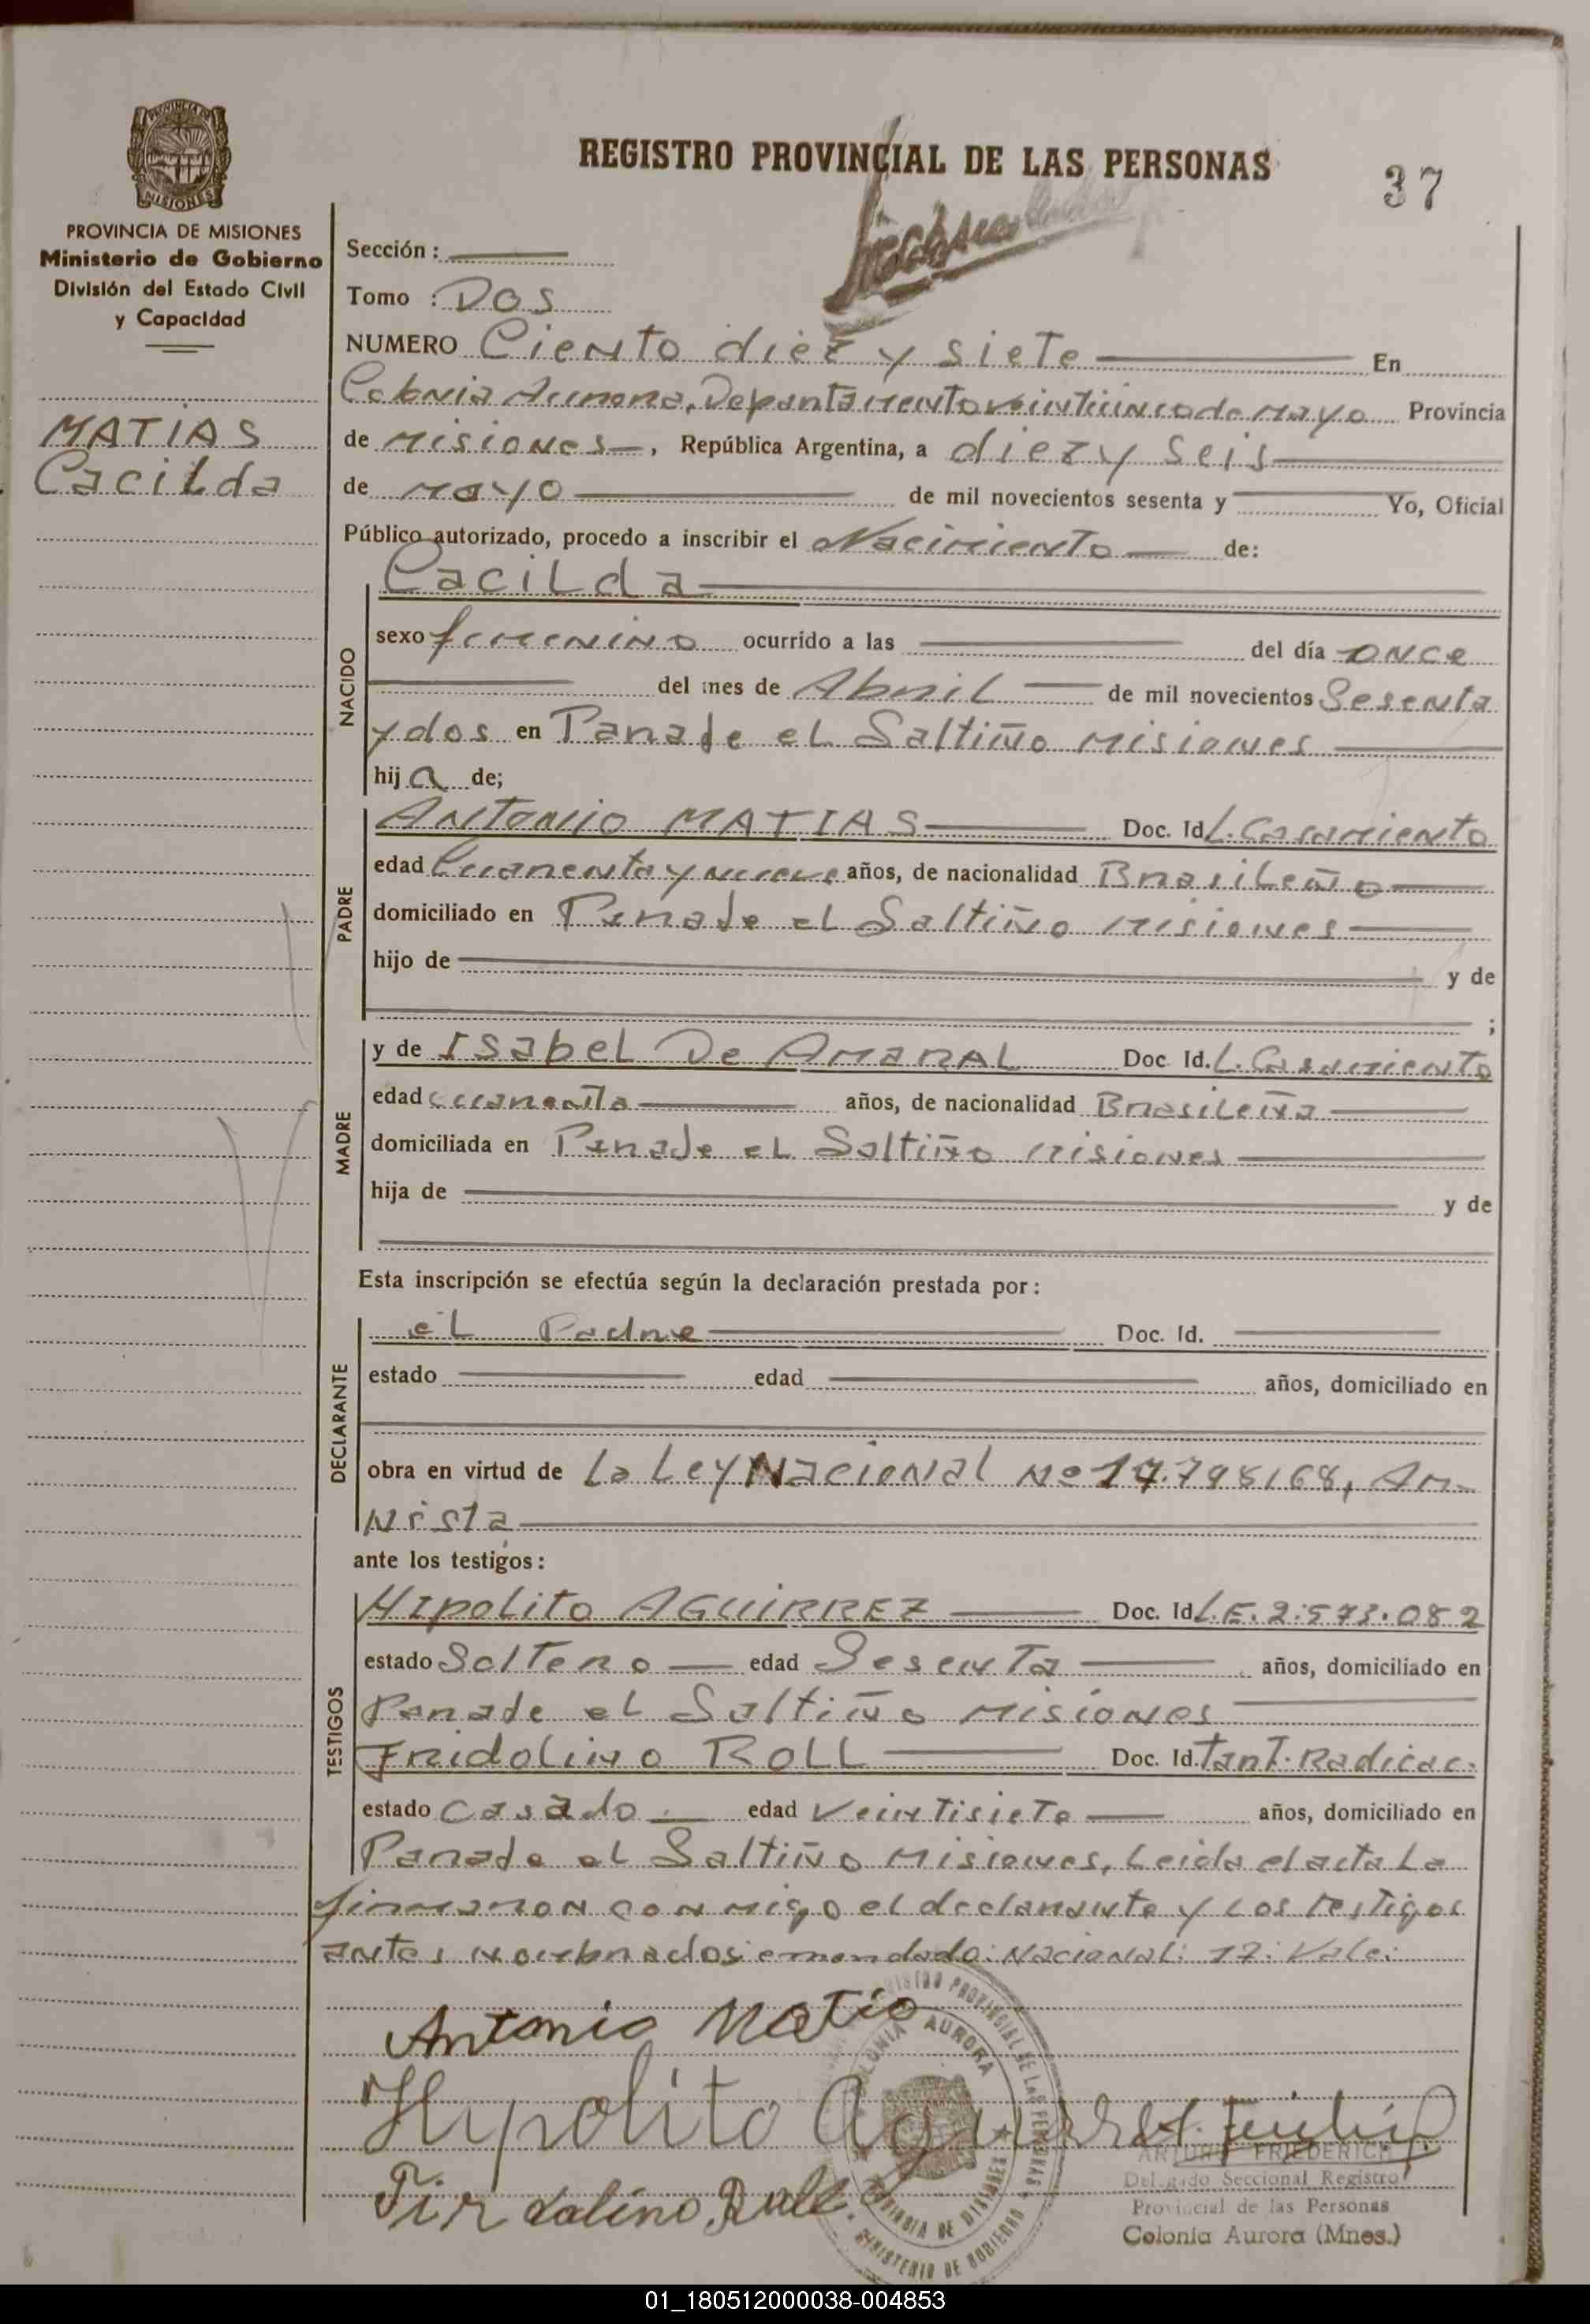 PROVINCIA DE MISIONES
MISIONES
PROVINCIA DE MISIONES
Ministerio de Gobierno
División del Estado Civil
y Capacidad
MATIAS
Cacilda
REGISTRO PROVINCIAL DE LAS PERSONAS
37
Sección :
Tomo : DOS
NUMERO Ciento diez y siete En
Colonia Aurora, Departamento veinticinco de Mayo Provincia
de Misiones, República Argentina, a diez y seis
de Mayo de mil novecientos sesenta y Yo, Oficial
Público autorizado, procedo a inscribir el Nacimiento de:
NACIDO
Cacilda
sexo femenino ocurrido a las del día once
del mes de Abril de mil novecientos Sesenta
y dos en Parade el Saltiño Misiones
hija de;
PADRE
Antonio MATIAS Doc. Id L. Casamiento
edad Cuarenta y nueve años, de nacionalidad Brasileño
domiciliado en Parade el Saltiño Misiones
hijo de y de
;
MADRE
y de Isabel De AMARAL Doc. Id. L. Casamiento
edad cuarenta años, de nacionalidad Brasileña
domiciliada en Parade el Saltiño Misiones
hija de y de
Esta inscripción se efectúa según la declaración prestada por:
DECLARANTE
el Padre Doc. Id.
estado edad años, domiciliado en
obra en virtud de la Ley Nacional Nº 17.798/68, Am-
nista
ante los testigos:
TESTIGOS
Hipolito AGUIRREZ Doc. Id L.E. 2.573.082
estado Soltero edad Sesenta años, domiciliado en
Parade el Saltiño Misiones
Fridolino ROLL Doc. Id. Tarj. Radicac.
estado Casado edad Veintisiete años, domiciliado en
Parade el Saltiño Misiones, Leida el acta La
firmaron conmigo el declarante y los testigos
antes nombrados: enmendado: Nacional: 17: Vale:
Antonio Matio
Hypolito Aguirre
Firdolino Roll
REGISTRO PROVINCIAL DE LAS PERSONAS
COLONIA AURORA
PROVINCIA DE MISIONES
MINISTERIO DE GOBIERNO
ARTURO FRIEDERICH
Delegado Seccional Registro
Provincial de las Personas
Colonia Aurora (Mnes.)
01_180512000038-004853